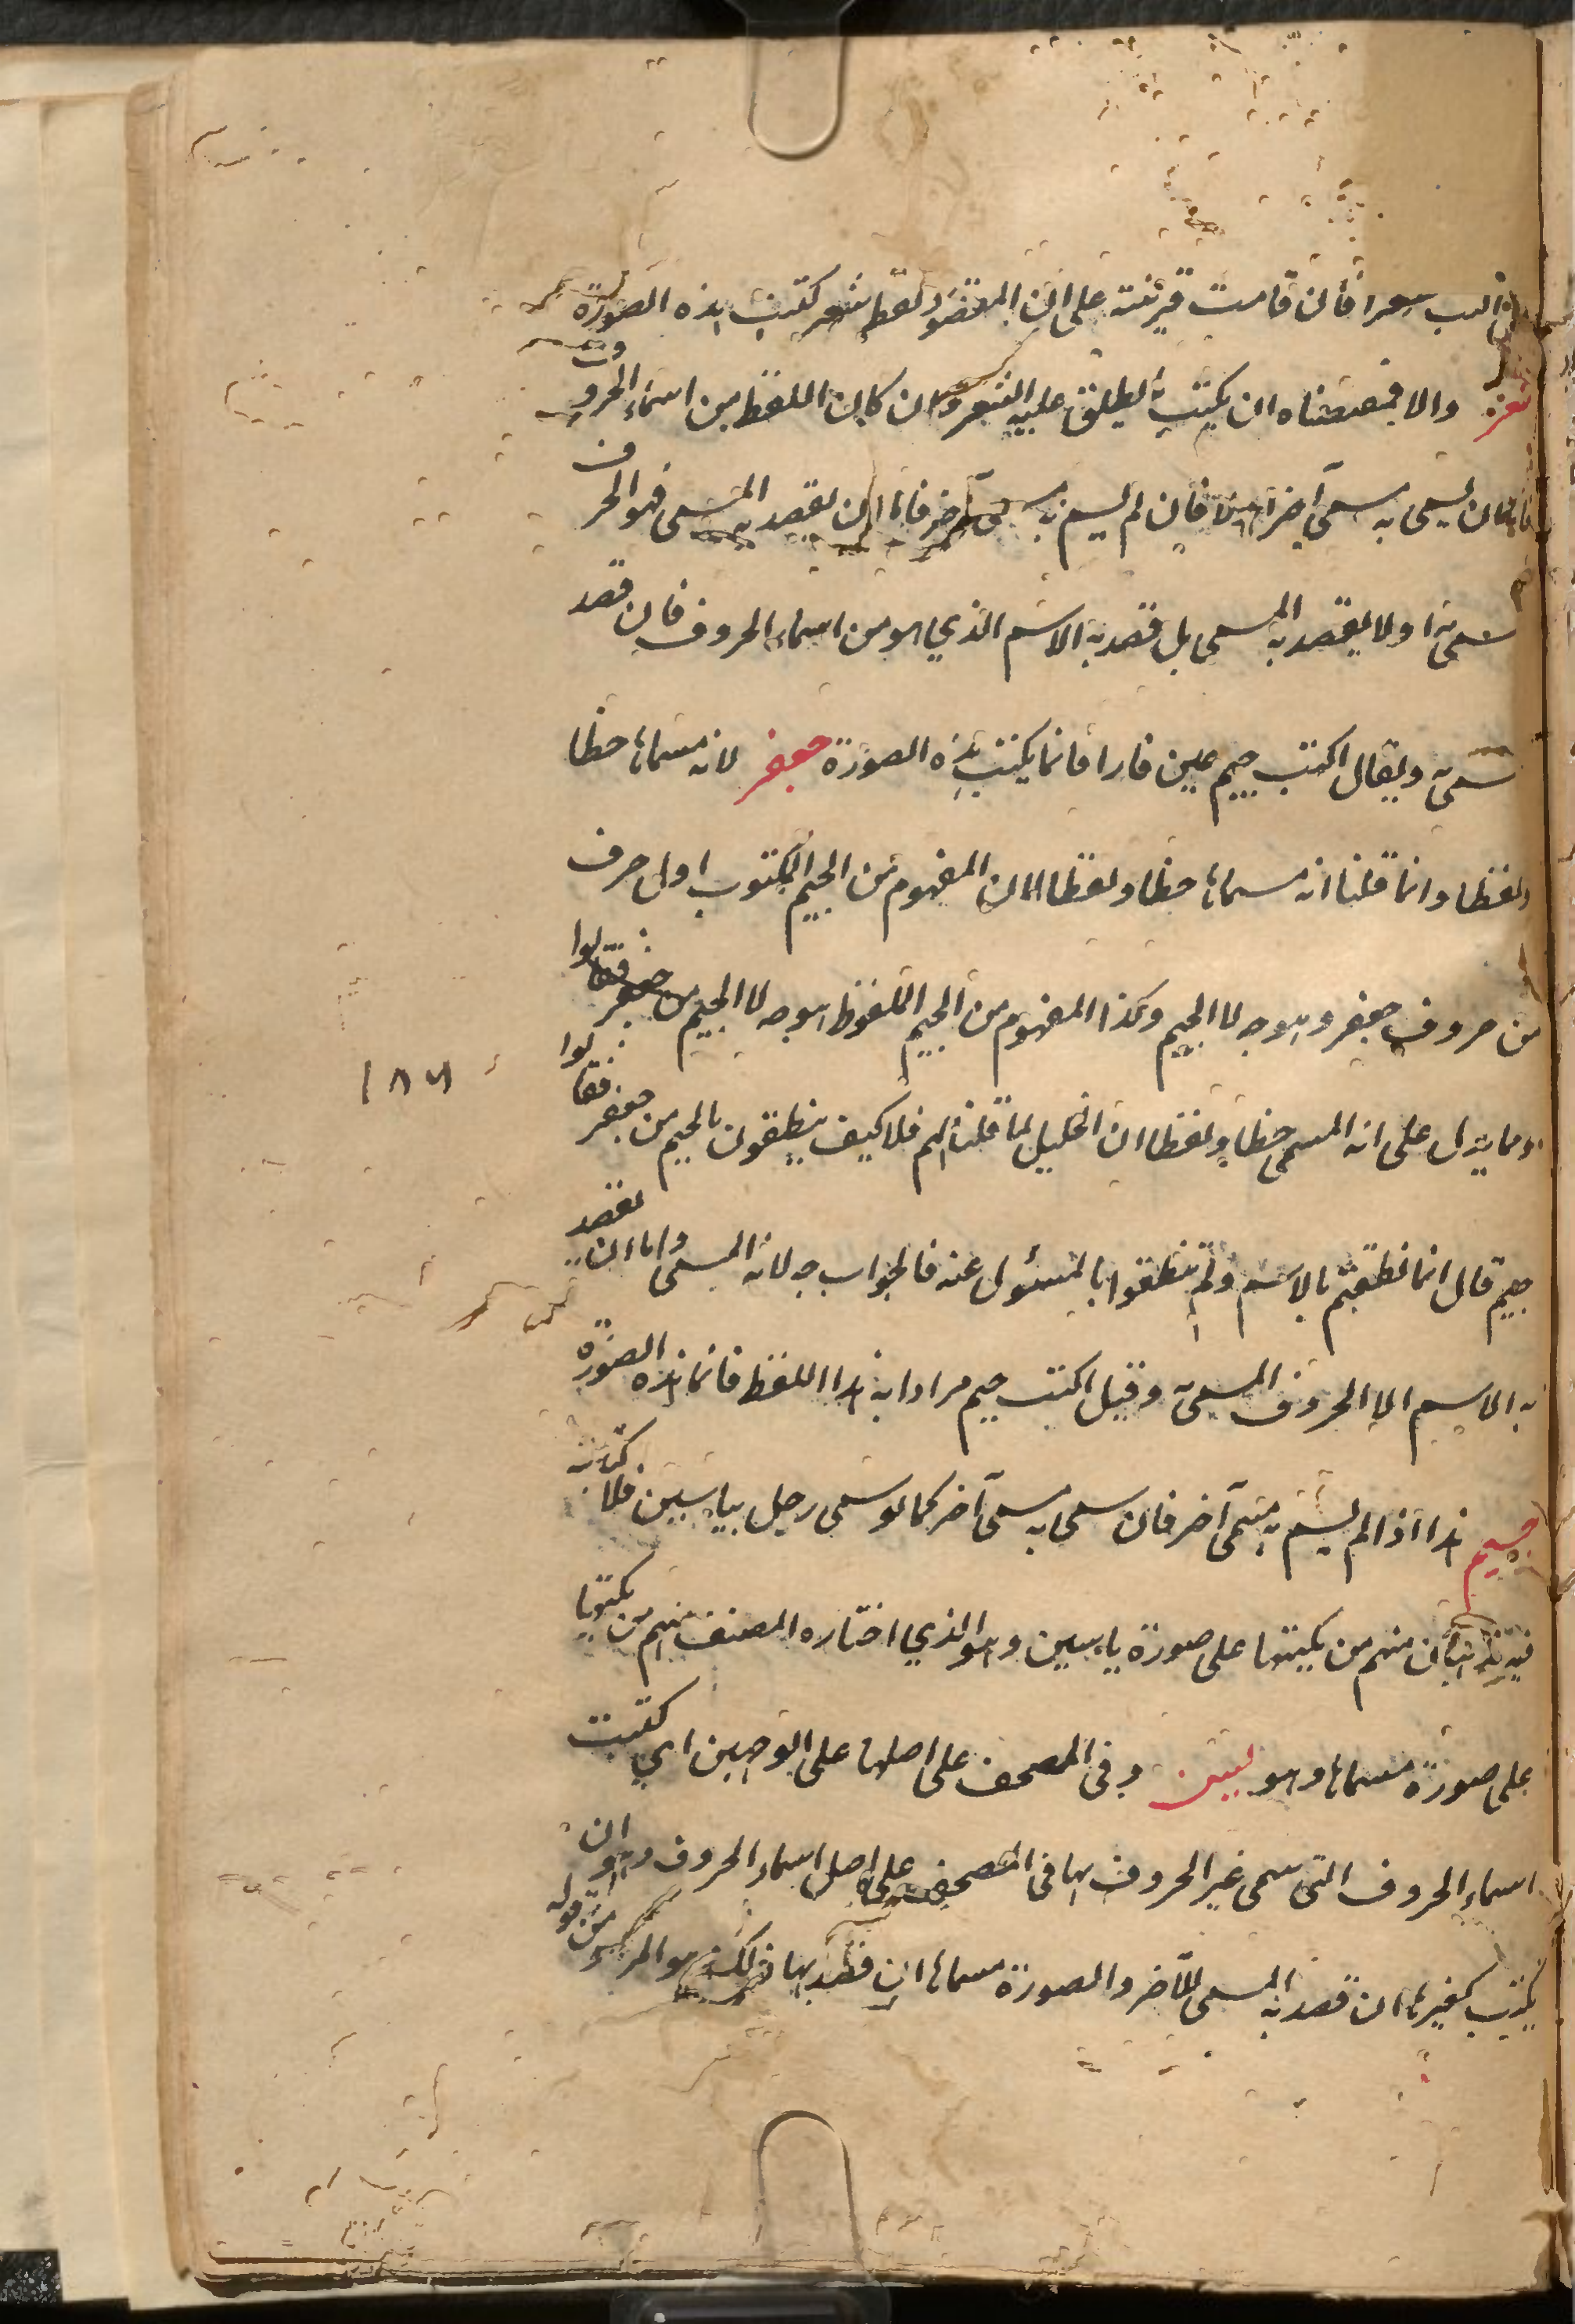 اكتب شعرا فان قامت قرينة على ان المقصود لفظ شعر كتبت هذه الصورة
شعر والا فمقتضاه ان يكتب ما يطلق عليه الشعر وان كان اللفظ من اسماء الحروف
فاما ان يسمى به مسمى آخر اولا فان لم يسم به مسمى آخر فاما ان يقصد به المسمى فهو الحرف
مسمى به اولا يقصد به المسمى بل قصد به الاسم الذي هو من اسماء الحروف فان قصد
مسمى به ويقال اكتب جيم عين فا را فانما يكتب هذه الصورة جعفر لانه مسماها خطا
ولفظا وانما قلنا انه مسماها خطا ولفظا لان المفهوم من الجيم المكتوب اول حرف
من حروف جعفر وهو جه لا الجيم وكذا المفهوم من الجيم الملفوظ هو جه لا الجيم من جعفر فقالوا
ومما يدل على انه المسمى خطا ولفظا ان الخليل لما قال لهم كيف ينطقون بالجيم من جعفر فقالوا
١٨٦
جيم قال انما نطقتم بالاسم ولم تنطقوا بالمسئول عنه فالجواب جه لانه المسمى واما ان يقصد
به الاسم لا الحروف المسمى به وقيل اكتب جيم مرادا به هذا اللفظ فانما هذه الصورة
جيم هذا اذا لم يسم به مسمى آخر فان سمى به مسمى آخر كما لو سمى رجل بياسين فلكتابته
فيه مذهبان منهم من يكتبها على صورة ياسين وهو الذي اختاره المصنف منهم من يكتبها
على صورة مسماها وهو يس وفى المصحف على اصلها على الوجهين اي كتبت
اسماء الحروف التى سمى غير الحروف بها فى المصحف على اصل اسماء الحروف وهو ان
يكتب كغيرها ان قصد به المسمى الآخر والصورة مسماها ان قصد بها ذلك هو المراد من قوله